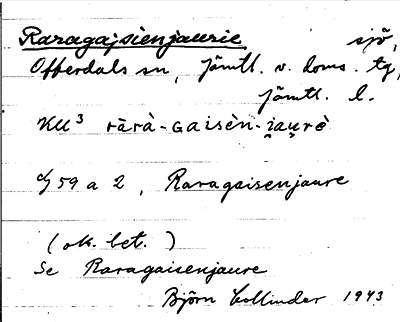 Raragajsienjaurie sjö,
Offerdals sn, Jämtl. v. doms. tg,
Jämtl. l.
KU³ rārà-Gaisèn-i̯au̯rè
9/59 a 2, Raragaisenjaure
(ok. bet.)
Se Raragaisenjaure
Björn Collinder 1943